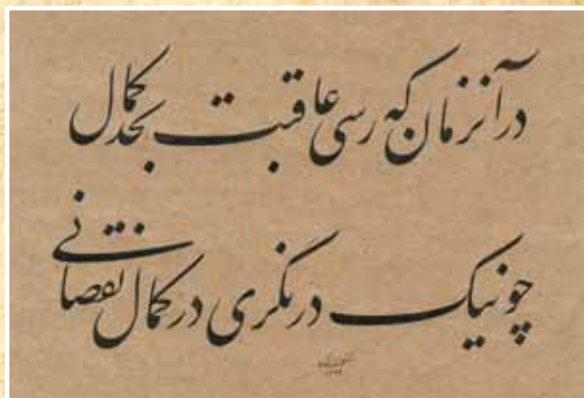 در آنزمان که رسی عاقبت بحد کمال
چو نیک درنگری در کمال نقصانی